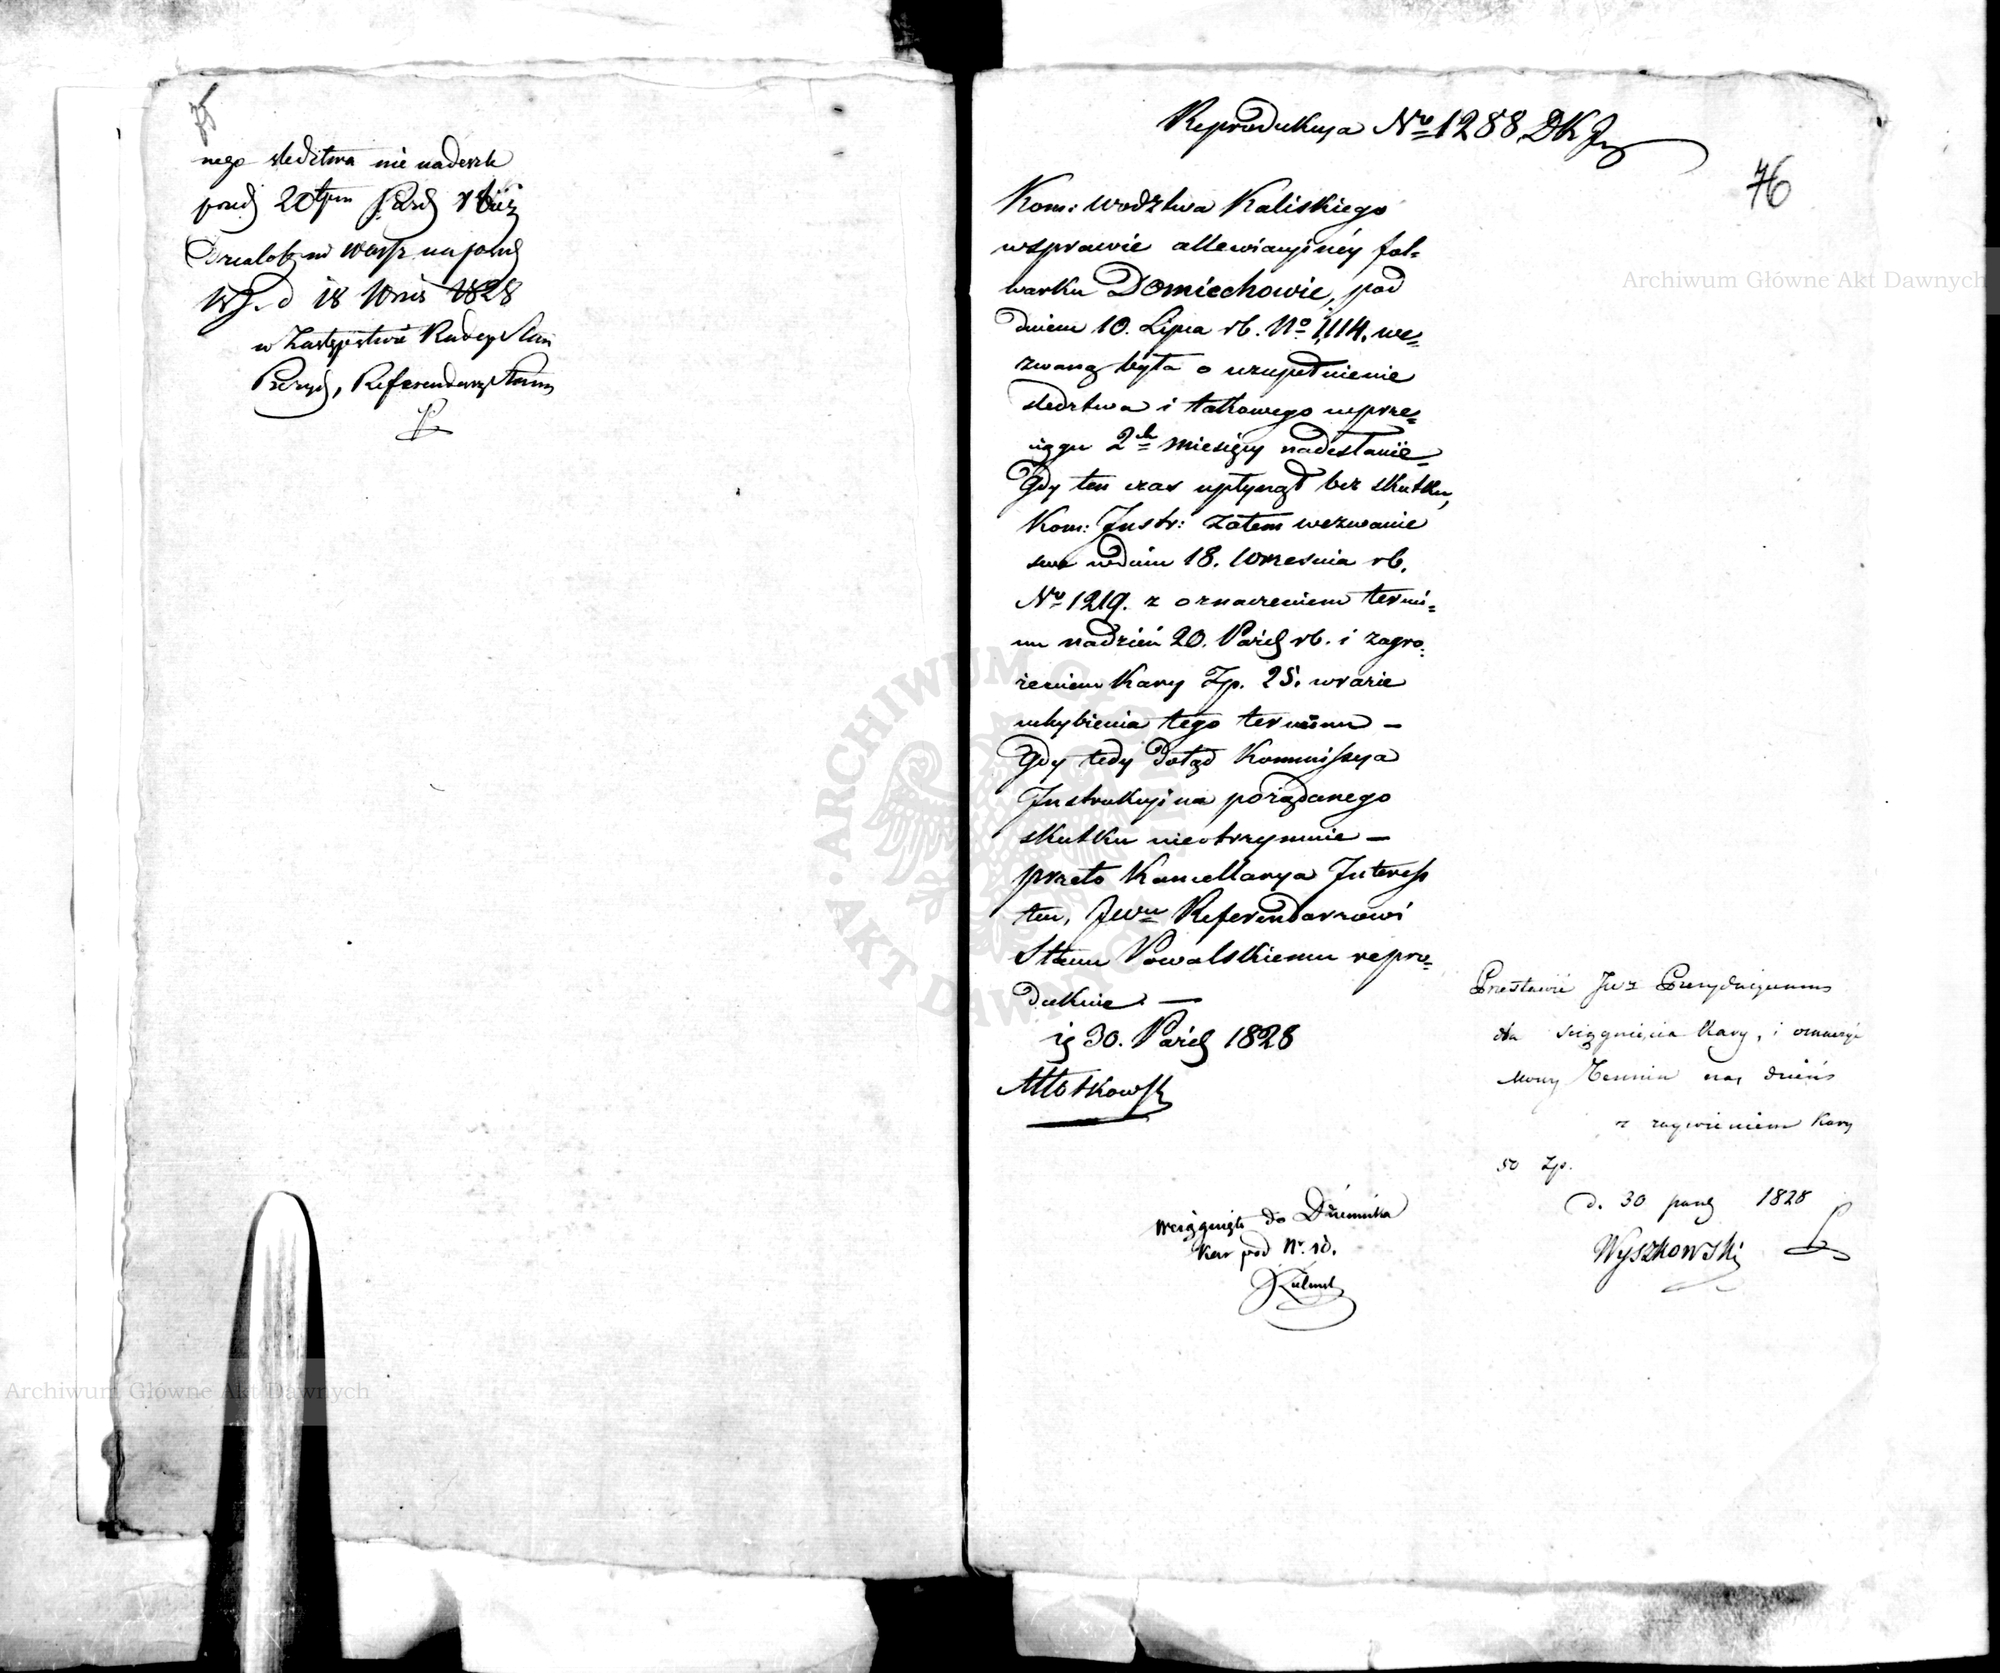 75
nego sledztwa nie nadeszle
przed 20tym Pazd r b
Działo się w Warsz na posied
d 18 Wrześ 1828
w Zastępstwie Radcy Stanu
Prezyd, Referendarz Stanu
Reprodukcya No 1288 DKJ
76
Kom: Wodztwa Kaliskiego
wsprawie allewiacyinéy fol=
warku Domiechowie, pod
dniem 10. Lipca rb. No 1,114. we=
zwaną była o uzupełnienie
sledztwa i takowego wprze=
ciągu 2ch miesięcy nadesłanie=
Gdy ten czas upłynął bez skutku,
Kom: Instr: zatem wezwanie
swe wdniu 18. Września rb.
No 1219. z oznaczeniem termi=
nu nadzień 20. Paźdz rb. i zagro=
żeniem Kary Zp. 25. wrazie
uchybienia tego terminu —
Gdy tedy dotąd Kommissya
Instrukcyina pożądanego
skutku nieotrzymuie —
przeto Kancellarya Interess
ten, JWmu Referendarzowi
Stanu Powalskiemu repro=
dukuie. —
30. Paźdz 1828
Młotkowski
Przesłanie Prezyduiącemu
dla sciągnięcia Kary, i oznaczyć
Nowy Termin na dzień
z zagrożeniem Kary
50 Zp.
d. 30 pazd 1828
Wyszkowski
Wciągnięto do Dziennika
Kar pod Nr. 10.
Archiwum Główne Akt Dawnych
Archiwum Główne Akt Dawnych
ARCHIWUM GŁÓWNE AKT DAWNYCH